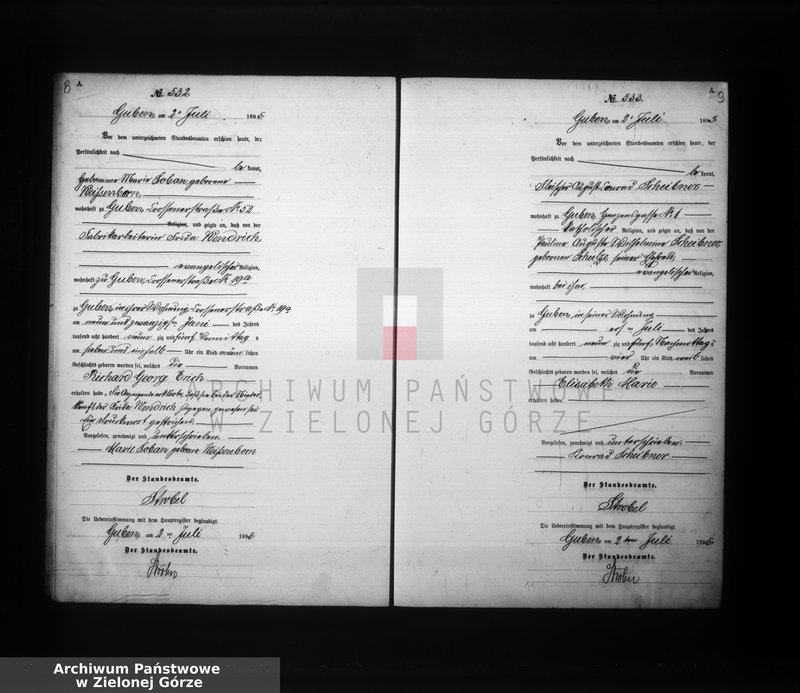 8 A
№. 532
Guben, am 2n Juli 1895
Vor dem unterzeichneten Standesbeamten erschien heute, der
Persönlichkeit nach
be kannt,
Hebamme Marie Soban geborene
Weißenborn,
wohnhaft zu Guben, Crossenerstraße № 52
Religion, und zeigte an, daß von der
Fabrikarbeiterin Frida Wendrich,
evangelischer Religion,
wohnhaft zu Guben, Crossenerstraße № 19a
zu Guben, in ihrer Wohnung, Crossenerstraße № 19a
am neun und zwanzigsten Juni des Jahres
tausend acht hundert neun zig und fünf, Vormittags
um sieben und einhalb Uhr ein Kind männ lichen
Geschlechts geboren worden sei, welches die Vornamen
Richard Georg Erich
erhalten habe. Die Anzeigende erklärte, daß sie bei der Nieder-
kunft der Frida Wendrich zugegen gewesen sei.
Ein Druckwort gestrichen.
Vorgelesen, genehmigt und unterschrieben.
Marie Soban geborene Weißenborn
Der Standesbeamte.
Strobel
Die Uebereinstimmung mit dem Hauptregister beglaubigt.
Guben, am 2n Juli 1895
Der Standesbeamte.
A 9
№. 533.
Guben, am 2n Juli 1895
Vor dem unterzeichneten Standesbeamten erschien heute, der
Persönlichkeit nach
be kannt,
Fleischer August Conrad Scheibner
wohnhaft zu Guben, № 1
katholischer Religion, und zeigte an, daß von der
Pauline Auguste Wilhelmine Scheibner,
geborenen Schulz, seiner Ehefrau,
evangelischer Religion,
wohnhaft bei ihm,
zu Guben, in seiner Wohnung
am ersten Juli des Jahres
tausend acht hundert neun zig und fünf, Nachmittags
um vier Uhr ein Kind weib lichen
Geschlechts geboren worden sei, welches die Vornamen
Elisabeth Marie
erhalten habe.
Vorgelesen, genehmigt und unterschrieben.
Konrad Scheibner
Der Standesbeamte.
Strobel
Die Uebereinstimmung mit dem Hauptregister beglaubigt.
Guben, am 2ten Juli 1895
Der Standesbeamte.
ARCHIWUM PAŃSTWOWE
W ZIELONEJ GÓRZE
Archiwum Państwowe
w Zielonej Górze